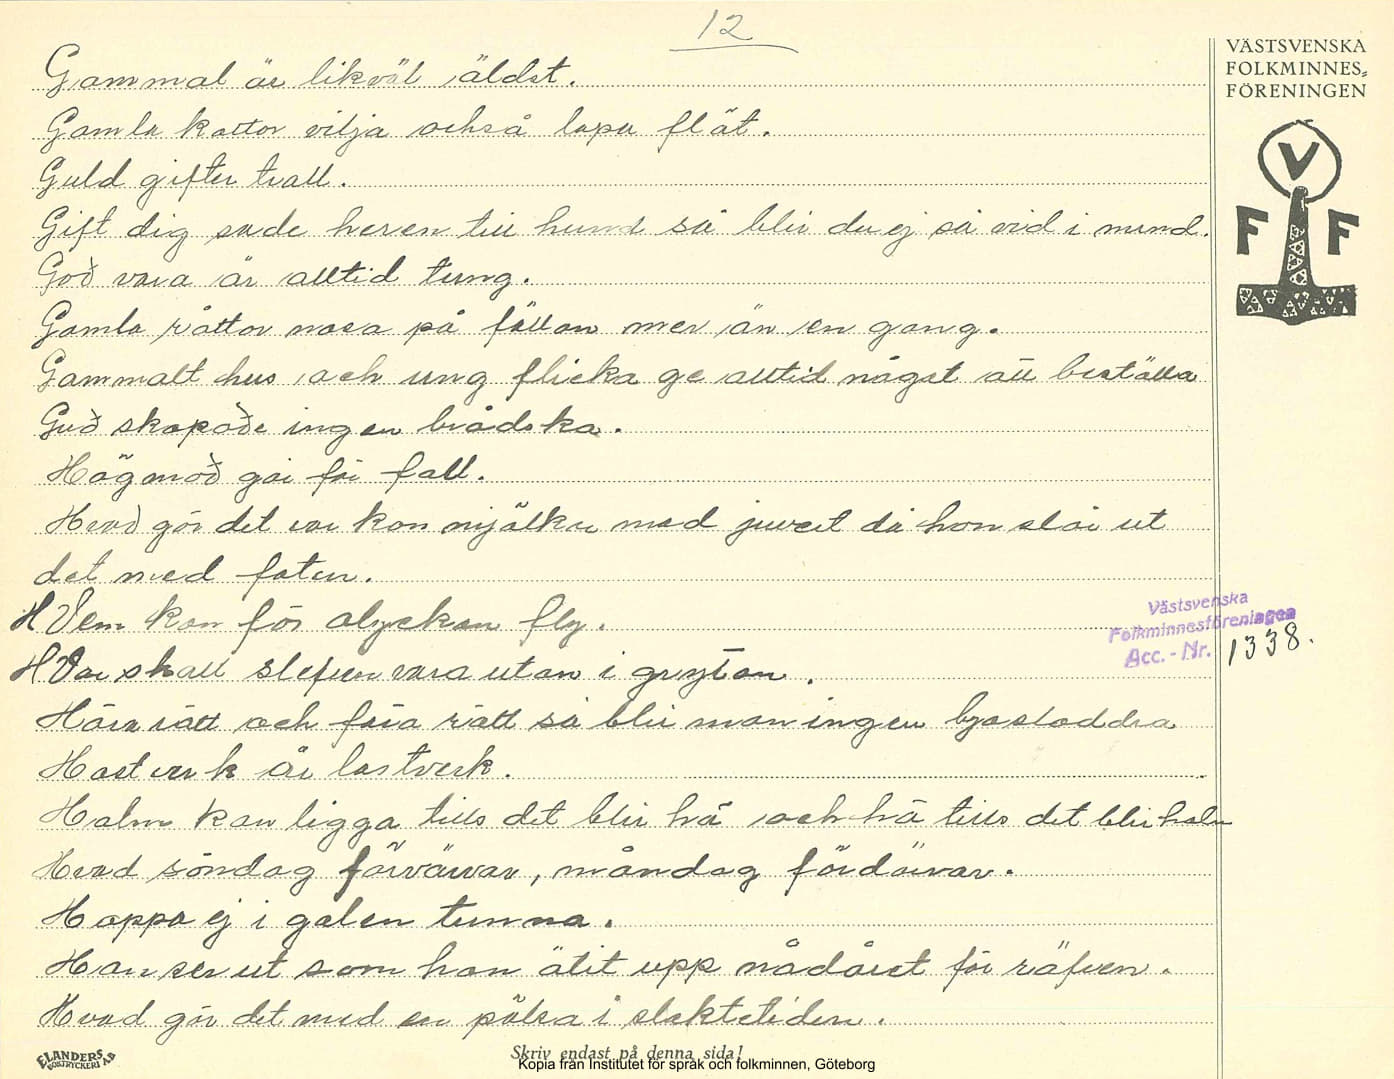 12
VÄSTSVENSKA
FOLKMINNES-
FÖRENINGEN
V
F F
Gammal är likväl äldst.
Gamla kattor vilja också lapa flät.
Guld gifter trall.
Gift dig sade haren till hund så blir du ej så vid i mund.
God vara är alltid tung.
Gamla råttor nosa på fällan mer än en gang.
Gammalt hus och ung flicka ge alltid något att beställa
Gud skapade ingen brådska.
Högmod går för fall.
Hvad gör det var kon mjölkar med juvret då hon slår ut
det med foten.
HVem kan för olyckan fly.
HVar skall slefven vara utan i grytan.
Höra rätt och föra rätt så blir man ingen
Hastverk är lastverk.
Halm kan ligga tills det blir hö och hö tills det blir halm
Hvad söndag förvärvar, måndag fördärvar.
Hoppa ej i galen tunna.
Han ser ut som han ätit upp nådåret för räfven.
Hvad gör det med en pölsa i slaktetiden.
Västsvenska
Folkminnesföreningen
Acc.-Nr. 1338.
ELANDERS
BOKTRYCKERI AB
Skriv endast på denna sida!
Kopia från Institutet för språk och folkminnen, Göteborg